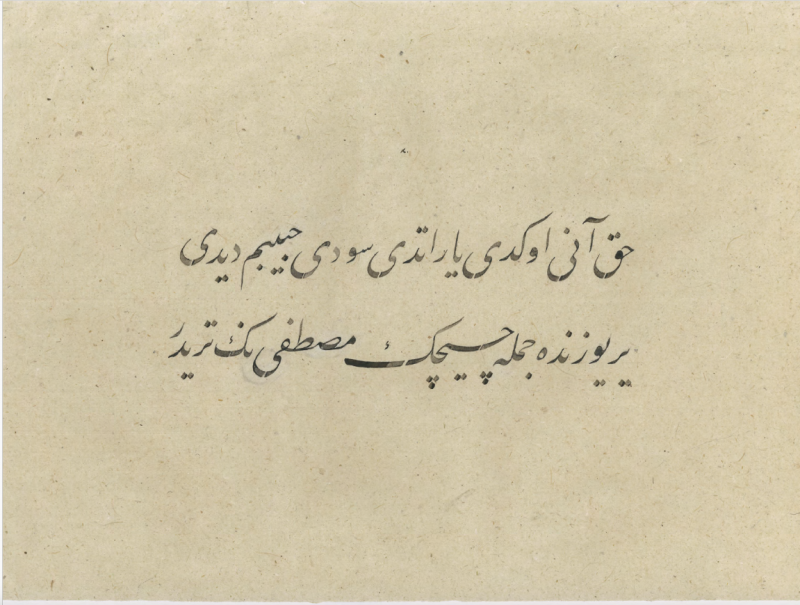 حق آنی اوكدی یاراتدی سودی حبیبم دیدی
یر یوزنده جمله چیچك مصطفی نك تریدر